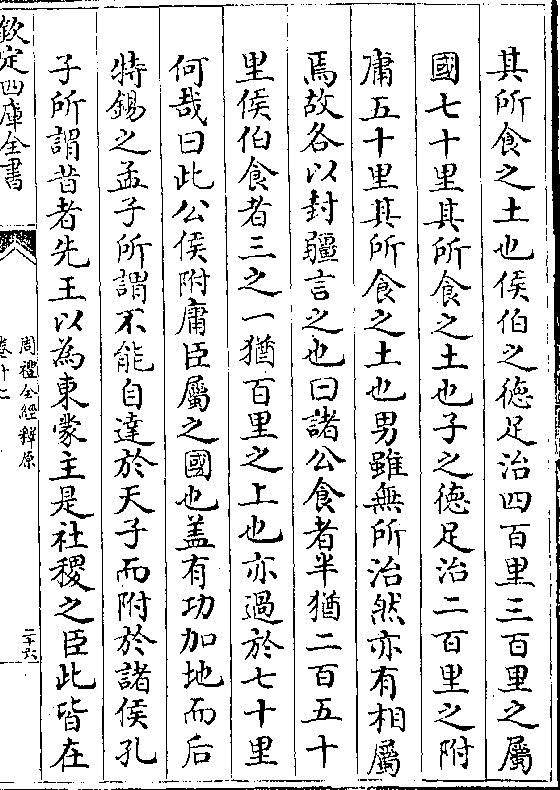 其所食之土也侯伯之德足治四百里三百里之屬
國七十里其所食之土也子之德足治二百里之附
庸五十里其所食之土也男雖無所治然亦有相屬
焉故各以封疆言之也曰諸公食者半猶二百五十
里侯伯食者三之一猶百里之上也亦過於七十里
何哉曰此公侯附庸臣屬之國也盖有功加地而后
特錫之孟子所謂不能自達於天子而附於諸侯孔
子所謂昔者先王以為東蒙主是社稷之臣此皆在
欽定四庫全書
周禮全經釋原
卷十
二十六